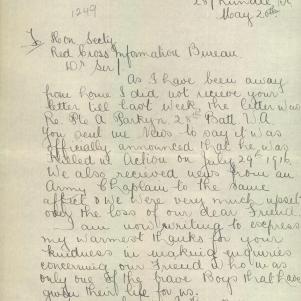 1249
May 20th
To Hon Secty
Red Cross Information Bureau
As I have been away
from home I did not receve your
letter till last week the letter was
Re. Pte A Parkyn 28th Batt. W.A
You sent me News to say it was
officially announced that he was
Killed in Action on July 29th 1916.
We also recieved news from an
Army Chaplain to the same
affect & we were very much upset
over the loss of our dear Friend
I am now writing to express
my warmest thanks for your
kindness in making inquiries
concerning our Friend who was
only one of the brave Boys that have
given their life for us.